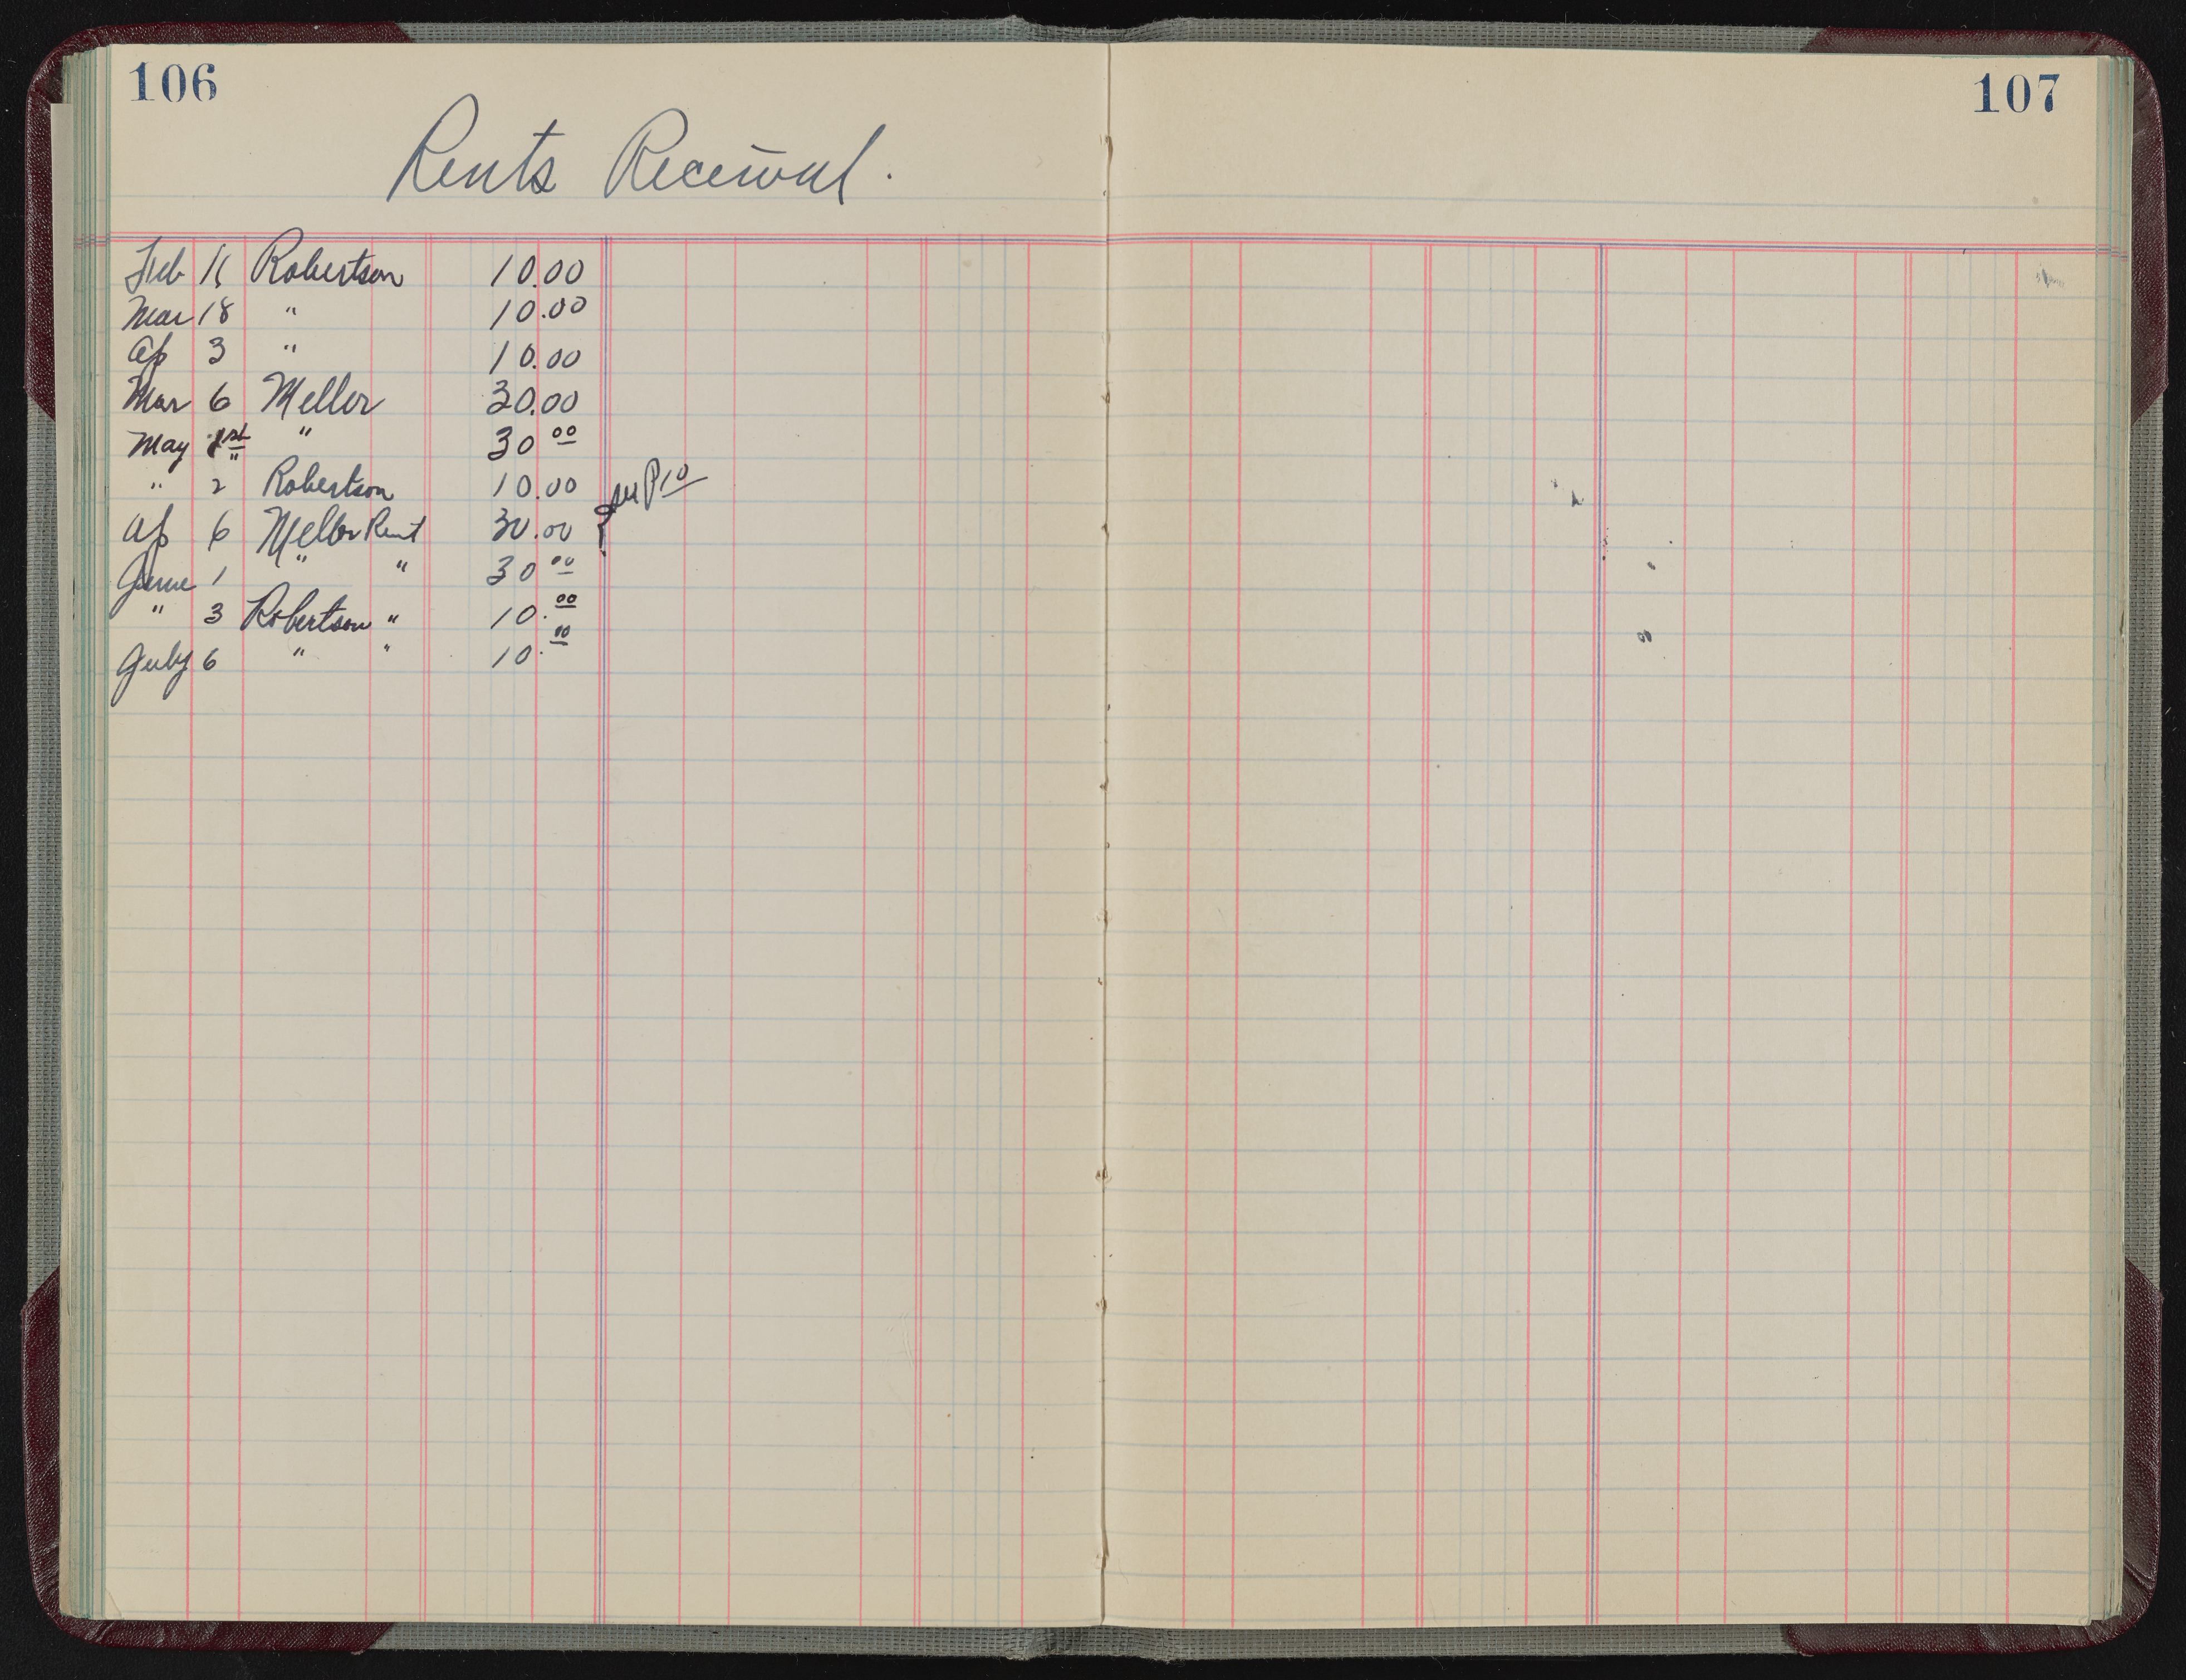 106
107
Rents Received.
Feb 16 Robertson 10.00
Mar 18 " 10.00
Ap 3 " 10.00
Mar 6 Meller 30.00
May 1st " 30 00
" 2 Robertson 10.00 see P 10
Ap 6 Meller Rent 30.00
June 1 " " 30 00
" 3 Robertson " 10.00
July 6 " " 10.00